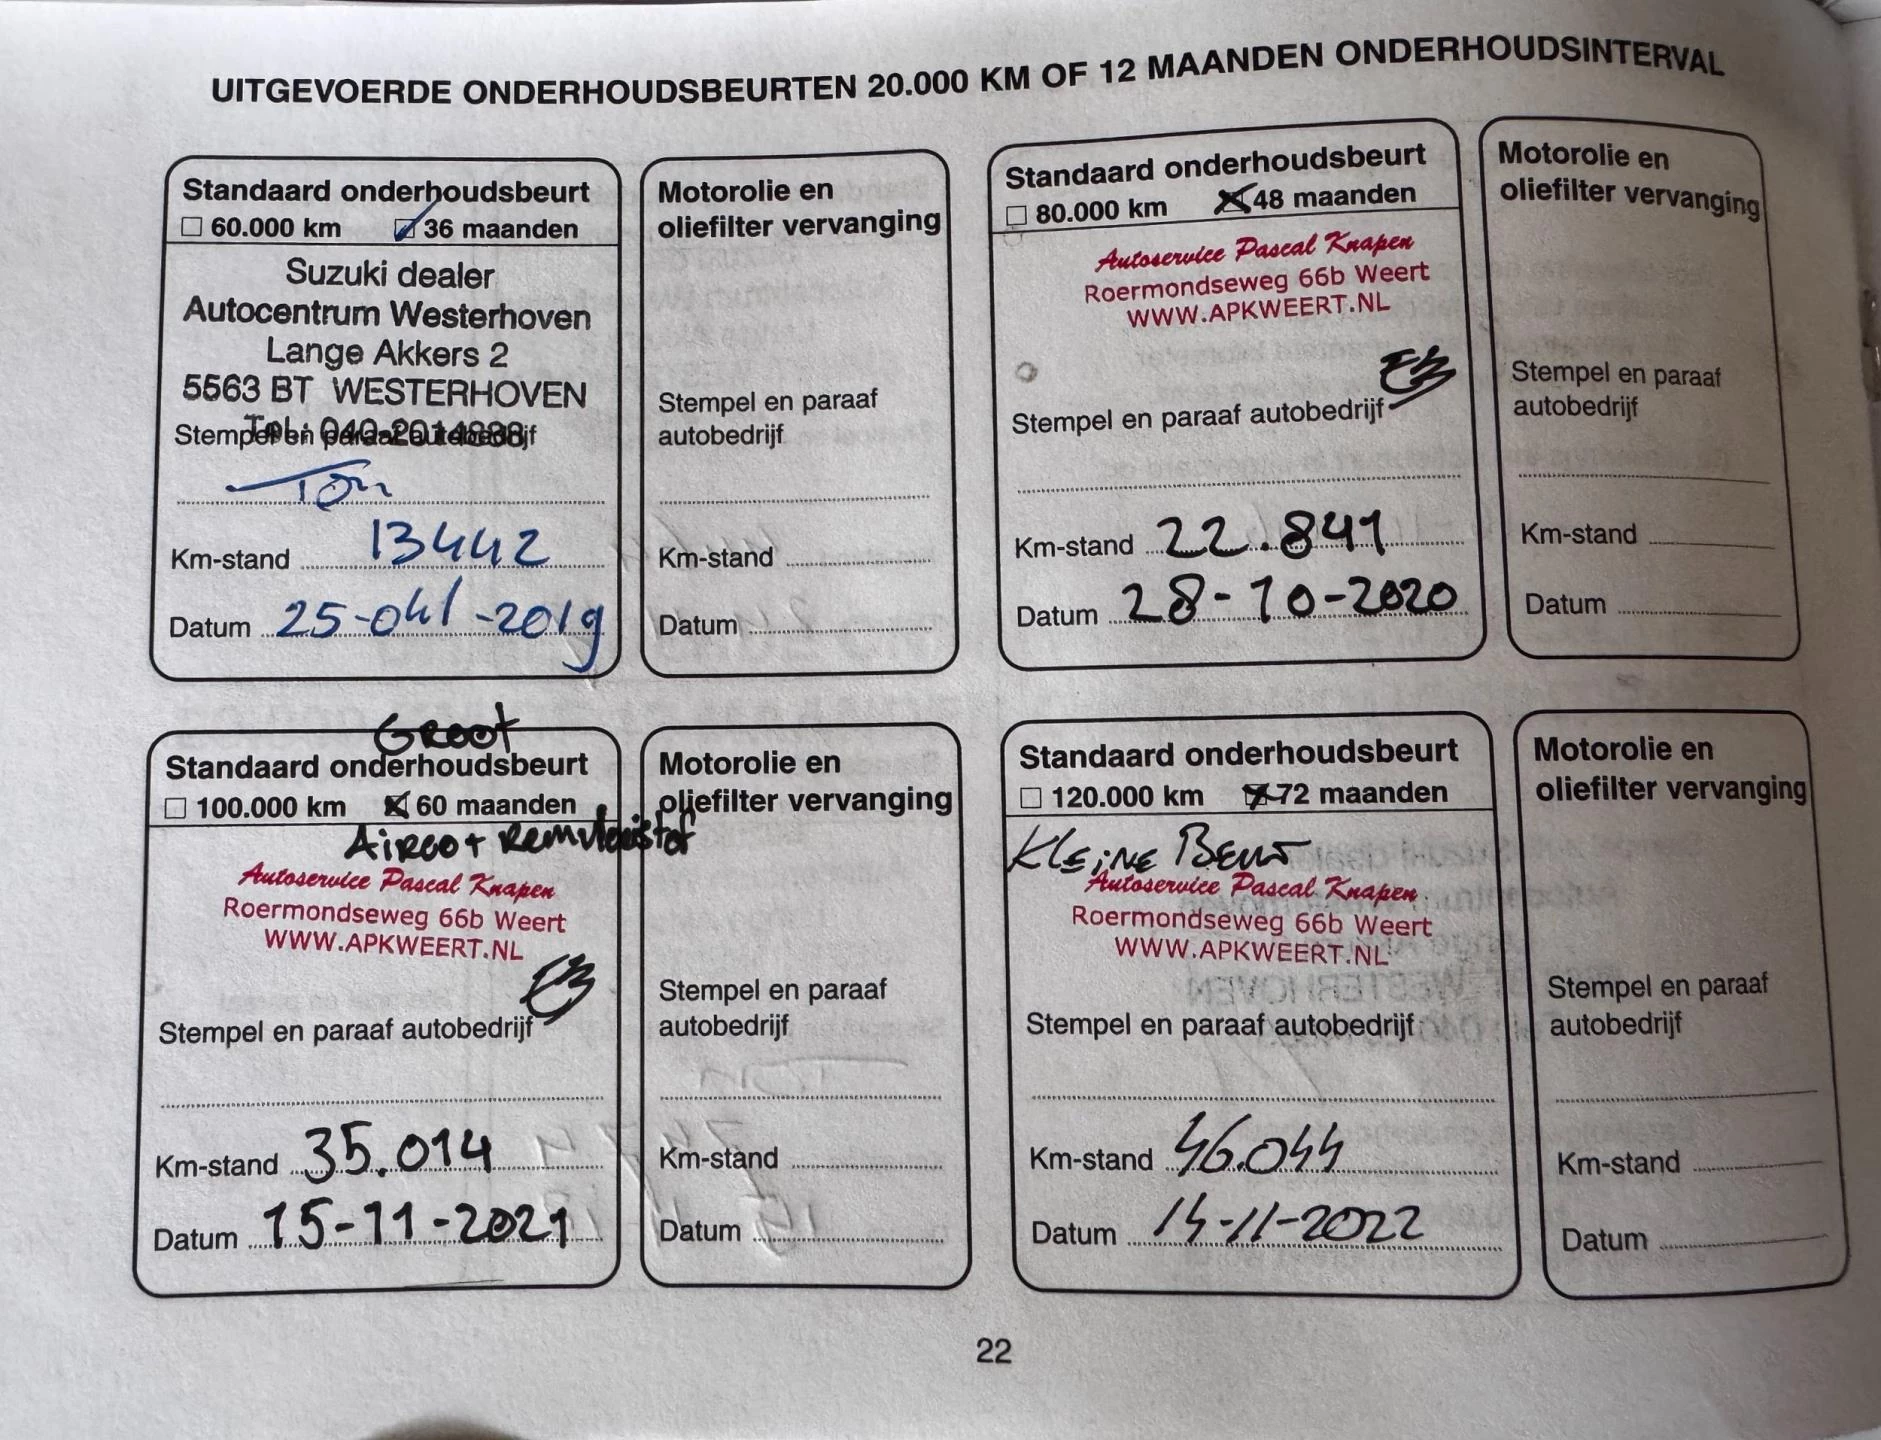 UITGEVOERDE ONDERHOUDSBEURTEN 20.000 KM OF 12 MAANDEN ONDERHOUDSINTERVAL
Standaard onderhoudsbeurt
60.000 km 36 maanden
Suzuki dealer
Autocentrum Westerhoven
Lange Akkers 2
5563 BT WESTERHOVEN
Tel.: 040-2014838
Stempel en paraaf autobedrijf
Ton
Km-stand 13442
Datum 25-okt-2019
Motorolie en
oliefilter vervanging
Stempel en paraaf
autobedrijf
Km-stand
Datum
Standaard onderhoudsbeurt
80.000 km 48 maanden
Autoservice Pascal Knapen
Roermondseweg 66b Weert
WWW.APKWEERT.NL
Stempel en paraaf autobedrijf
Km-stand 22.841
Datum 28-10-2020
Motorolie en
oliefilter vervanging
Stempel en paraaf
autobedrijf
Km-stand
Datum
Groot
Standaard onderhoudsbeurt
100.000 km 60 maanden
Airco + Remvloeistof
Autoservice Pascal Knapen
Roermondseweg 66b Weert
WWW.APKWEERT.NL
Stempel en paraaf autobedrijf
Km-stand 35.014
Datum 15-11-2021
Motorolie en
oliefilter vervanging
Stempel en paraaf
autobedrijf
Km-stand
Datum
Standaard onderhoudsbeurt
120.000 km 72 maanden
Kleine Beurt
Autoservice Pascal Knapen
Roermondseweg 66b Weert
WWW.APKWEERT.NL
Stempel en paraaf autobedrijf
Km-stand 46.044
Datum 14-11-2022
Motorolie en
oliefilter vervanging
Stempel en paraaf
autobedrijf
Km-stand
Datum
22